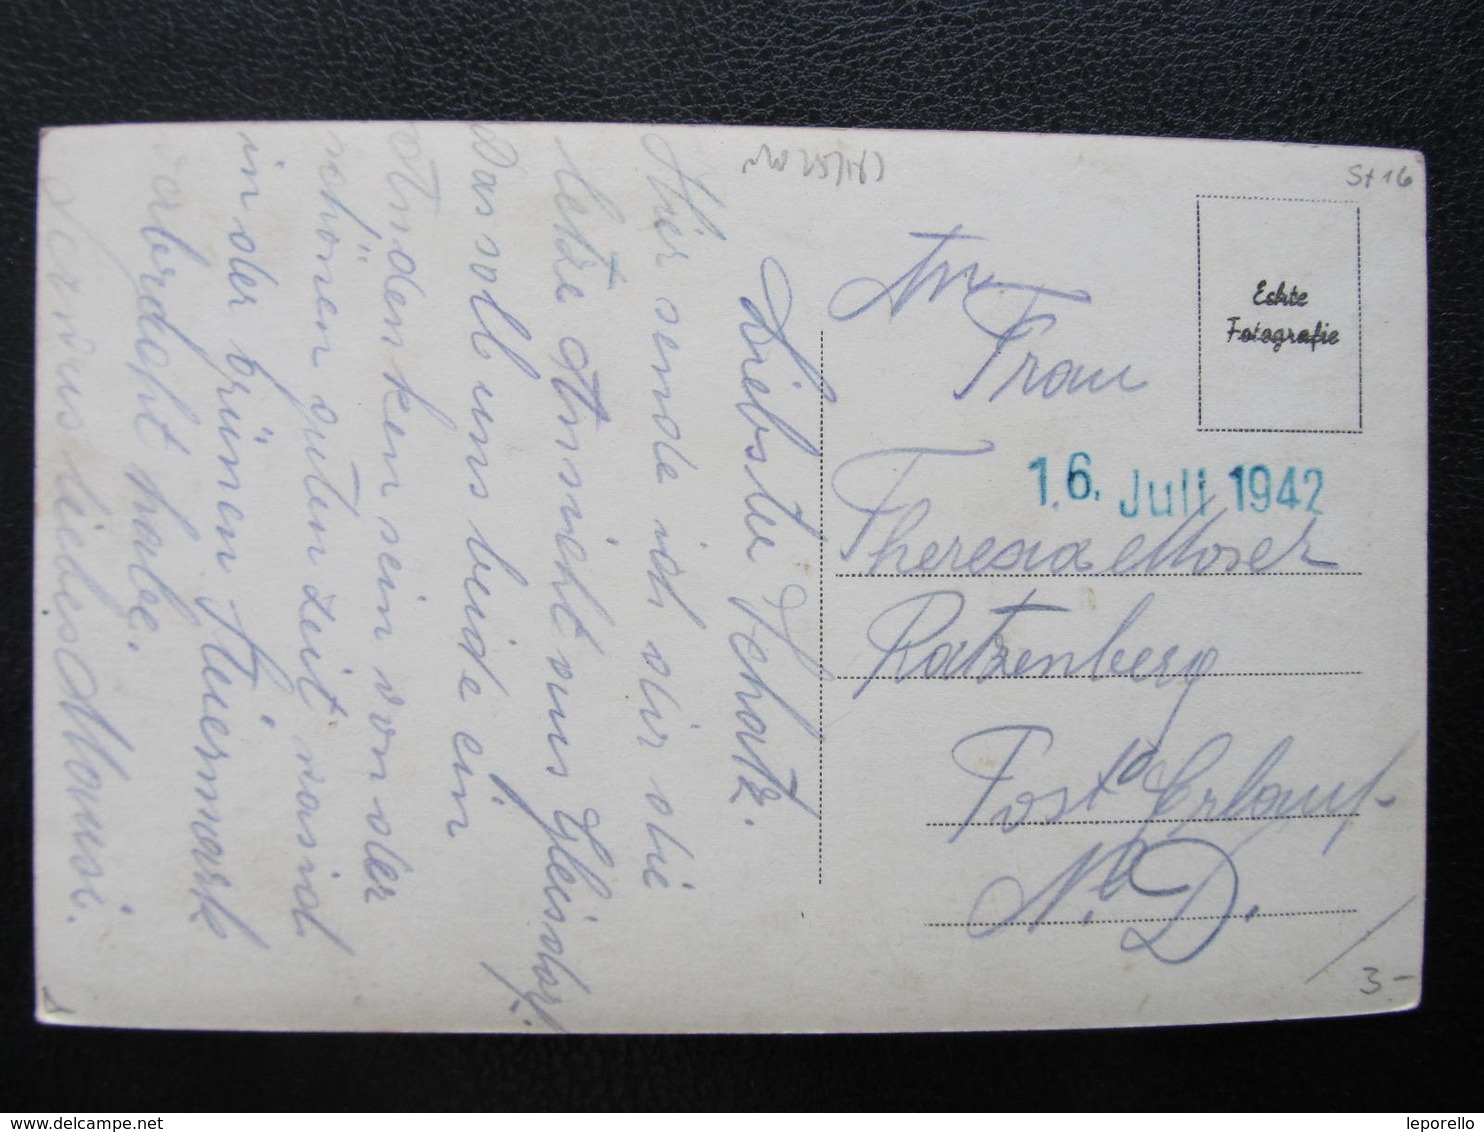 Liebster Schatz.
Hier sende ich dir die
letze Ansicht aus Gleisdorf.
Das soll uns beide ein
Andenken sein von der
schönen guten Zeit was ich
in der grünen Steiermark
verbracht habe.
Servus liebes Mausi.
An
Frau
Theresia Moser
Ratzenberg
Post Erlauf
N. D.
16. Juli 1942
Echte
Fotografie
St 16
3.-
delcampe.net
leporello